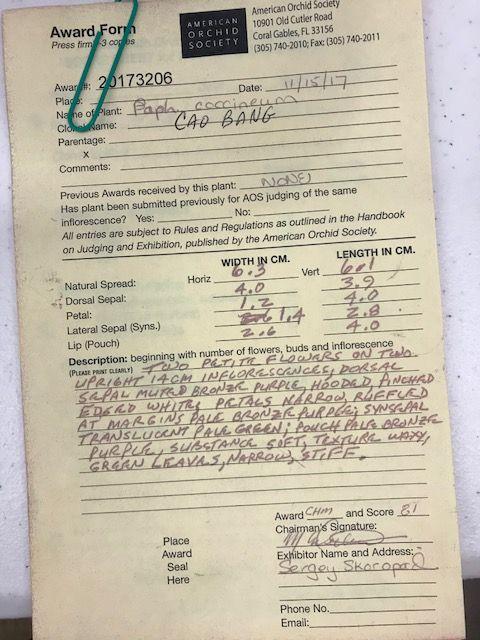 Award Form
Press firm - 3 copies
AMERICAN
ORCHID
SOCIETY
American Orchid Society
10901 Old Cutler Road
Coral Gables, FL 33156
(305) 740-2010; Fax: (305) 740-2011
Award #: 20173206
Date: 11/15/17
Place:
Name of Plant: Paph. coccineum
Clonal Name: CAO BANG
Parentage:
x
Comments:
Previous Awards received by this plant: NONE
Has plant been submitted previously for AOS judging of the same
inflorescence? Yes: No:
All entries are subject to Rules and Regulations as outlined in the Handbook
on Judging and Exhibition, published by the American Orchid Society.
WIDTH IN CM. LENGTH IN CM.
Natural Spread: Horiz 6.3 Vert 6.1
Dorsal Sepal: 4.0 3.9
Petal: 1.2 4.0
Lateral Sepal (Syns.) 1.4 2.8
Lip (Pouch) 2.6 4.0
Description: beginning with number of flowers, buds and inflorescence
(PLEASE PRINT CLEARLY) TWO PETITE FLOWERS ON TWO
UPRIGHT 14CM INFLORESCENCES, DORSAL
SEPAL MUTED BRONZE PURPLE, HOODED, PINCHED
EDGED WHITE, PETALS NARROW, RUFFLED
AT MARGINS PALE BRONZE PURPLE; SYNSEPAL
TRANSLUCENT PALE GREEN; POUCH PALE BRONZE
PURPLE, SUBSTANCE SOFT, TEXTURE WAXY,
GREEN LEAVES, NARROW, STIFF.
Award CHM and Score 81
Chairman's Signature:
Place
Award
Seal
Here
Exhibitor Name and Address:
Sergey Skoropad
Phone No.
Email: